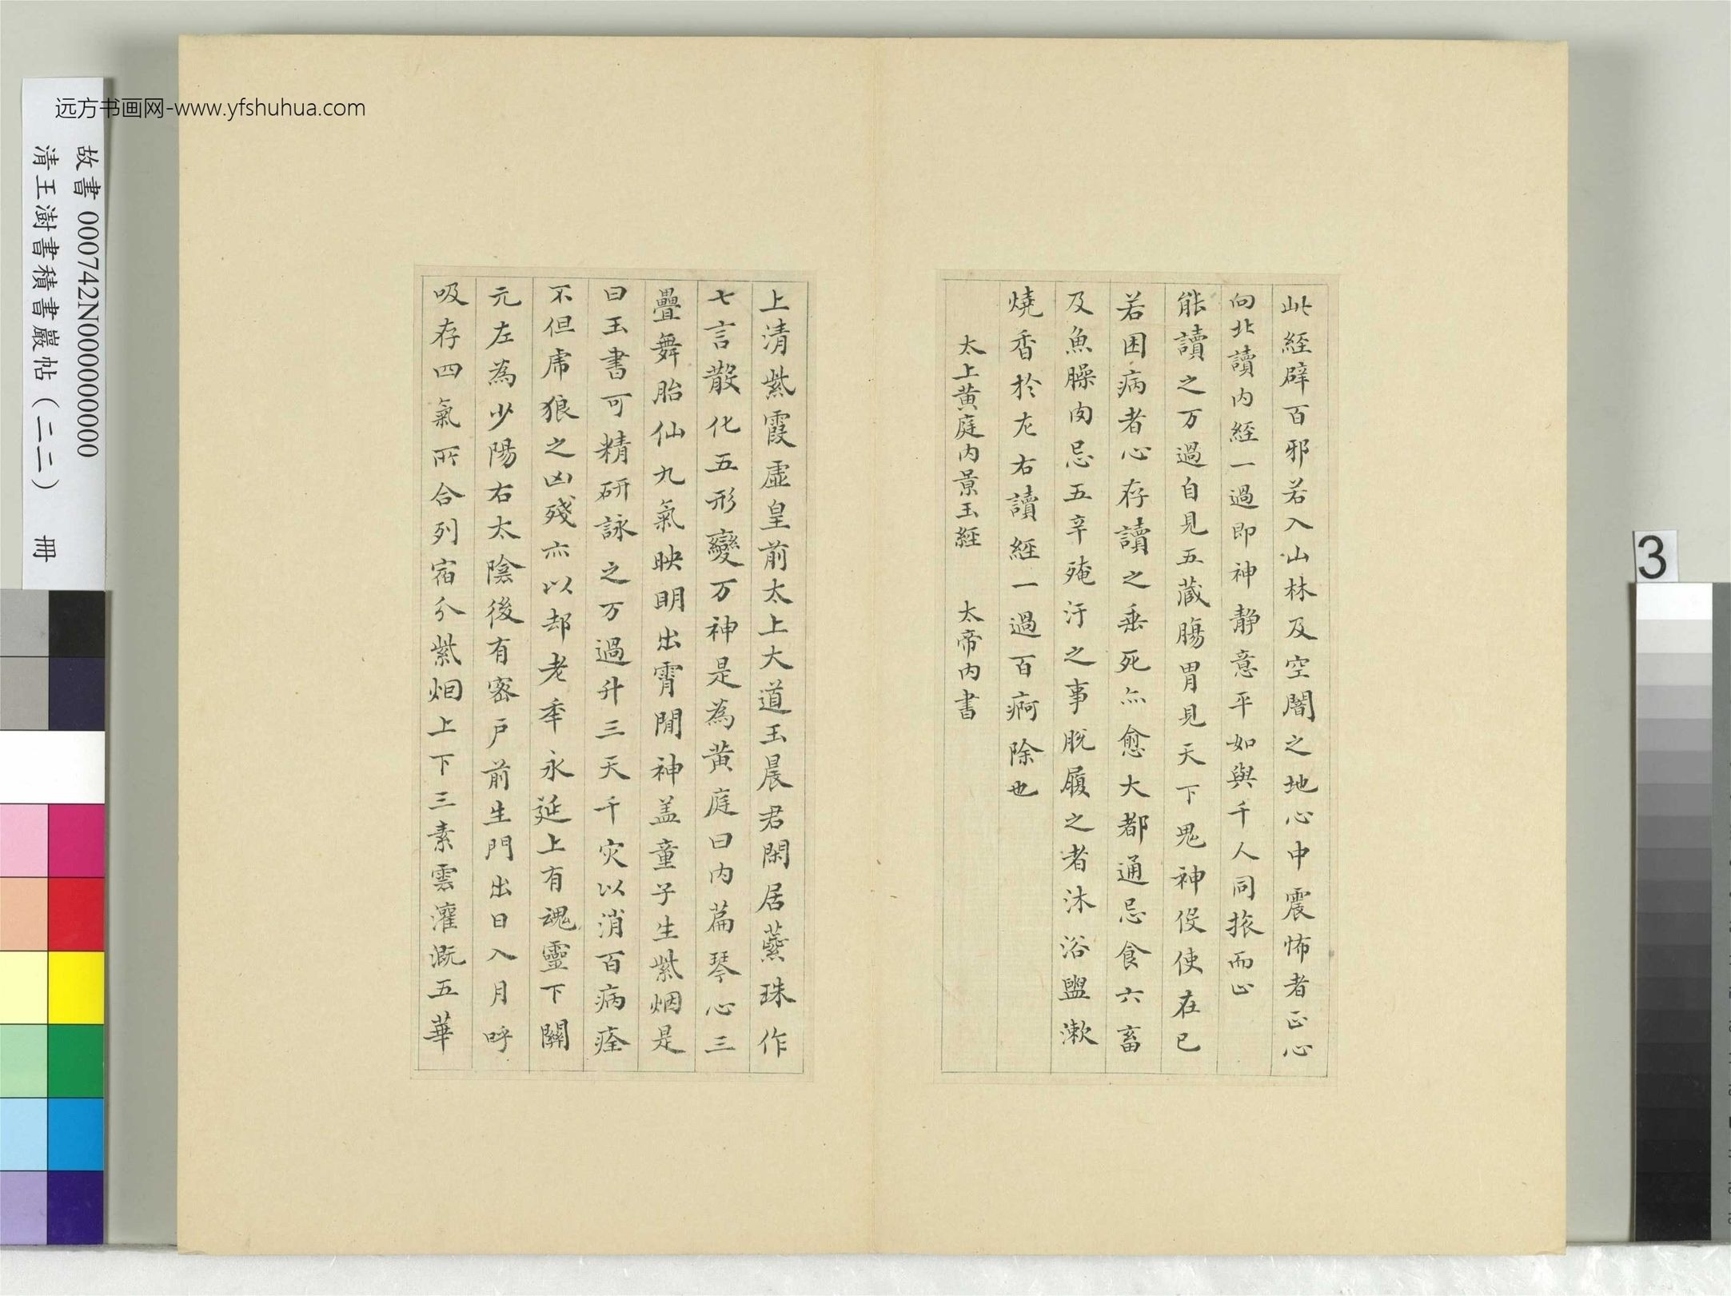 远方书画网-www.yfshuhua.com
故書 000742N000000000
清王澍書積書巖帖（二二） 冊
3
此經辟百邪若入山林及空闇之地心中震怖者正心
向北讀内經一過即神静意平如與千人同旅而止
能讀之万過自見五藏膓胃見天下鬼神伇使在已
若困病者心存讀之垂死亦愈大都通忌食六畜
及魚臊肉忌五辛殗汙之事脱履之者沐浴盥漱
燒香於左右讀經一過百痾除也
太上黄庭内景玉經 太帝内書
上清紫霞虛皇前太上大道玉晨君閑居蘂珠作
七言散化五形變万神是為黄庭曰内萹琴心三
疊舞胎仙九氣映明出霄間神盖童子生紫烟是
曰玉書可精研詠之万過升三天千灾以消百病痊
不但虎狼之凶殘亦以却老年永延上有魂靈下關
元左為少陽右太陰後有密戸前生門出日入月呼
吸存四氣所合列宿分紫烟上下三素雲灌溉五華